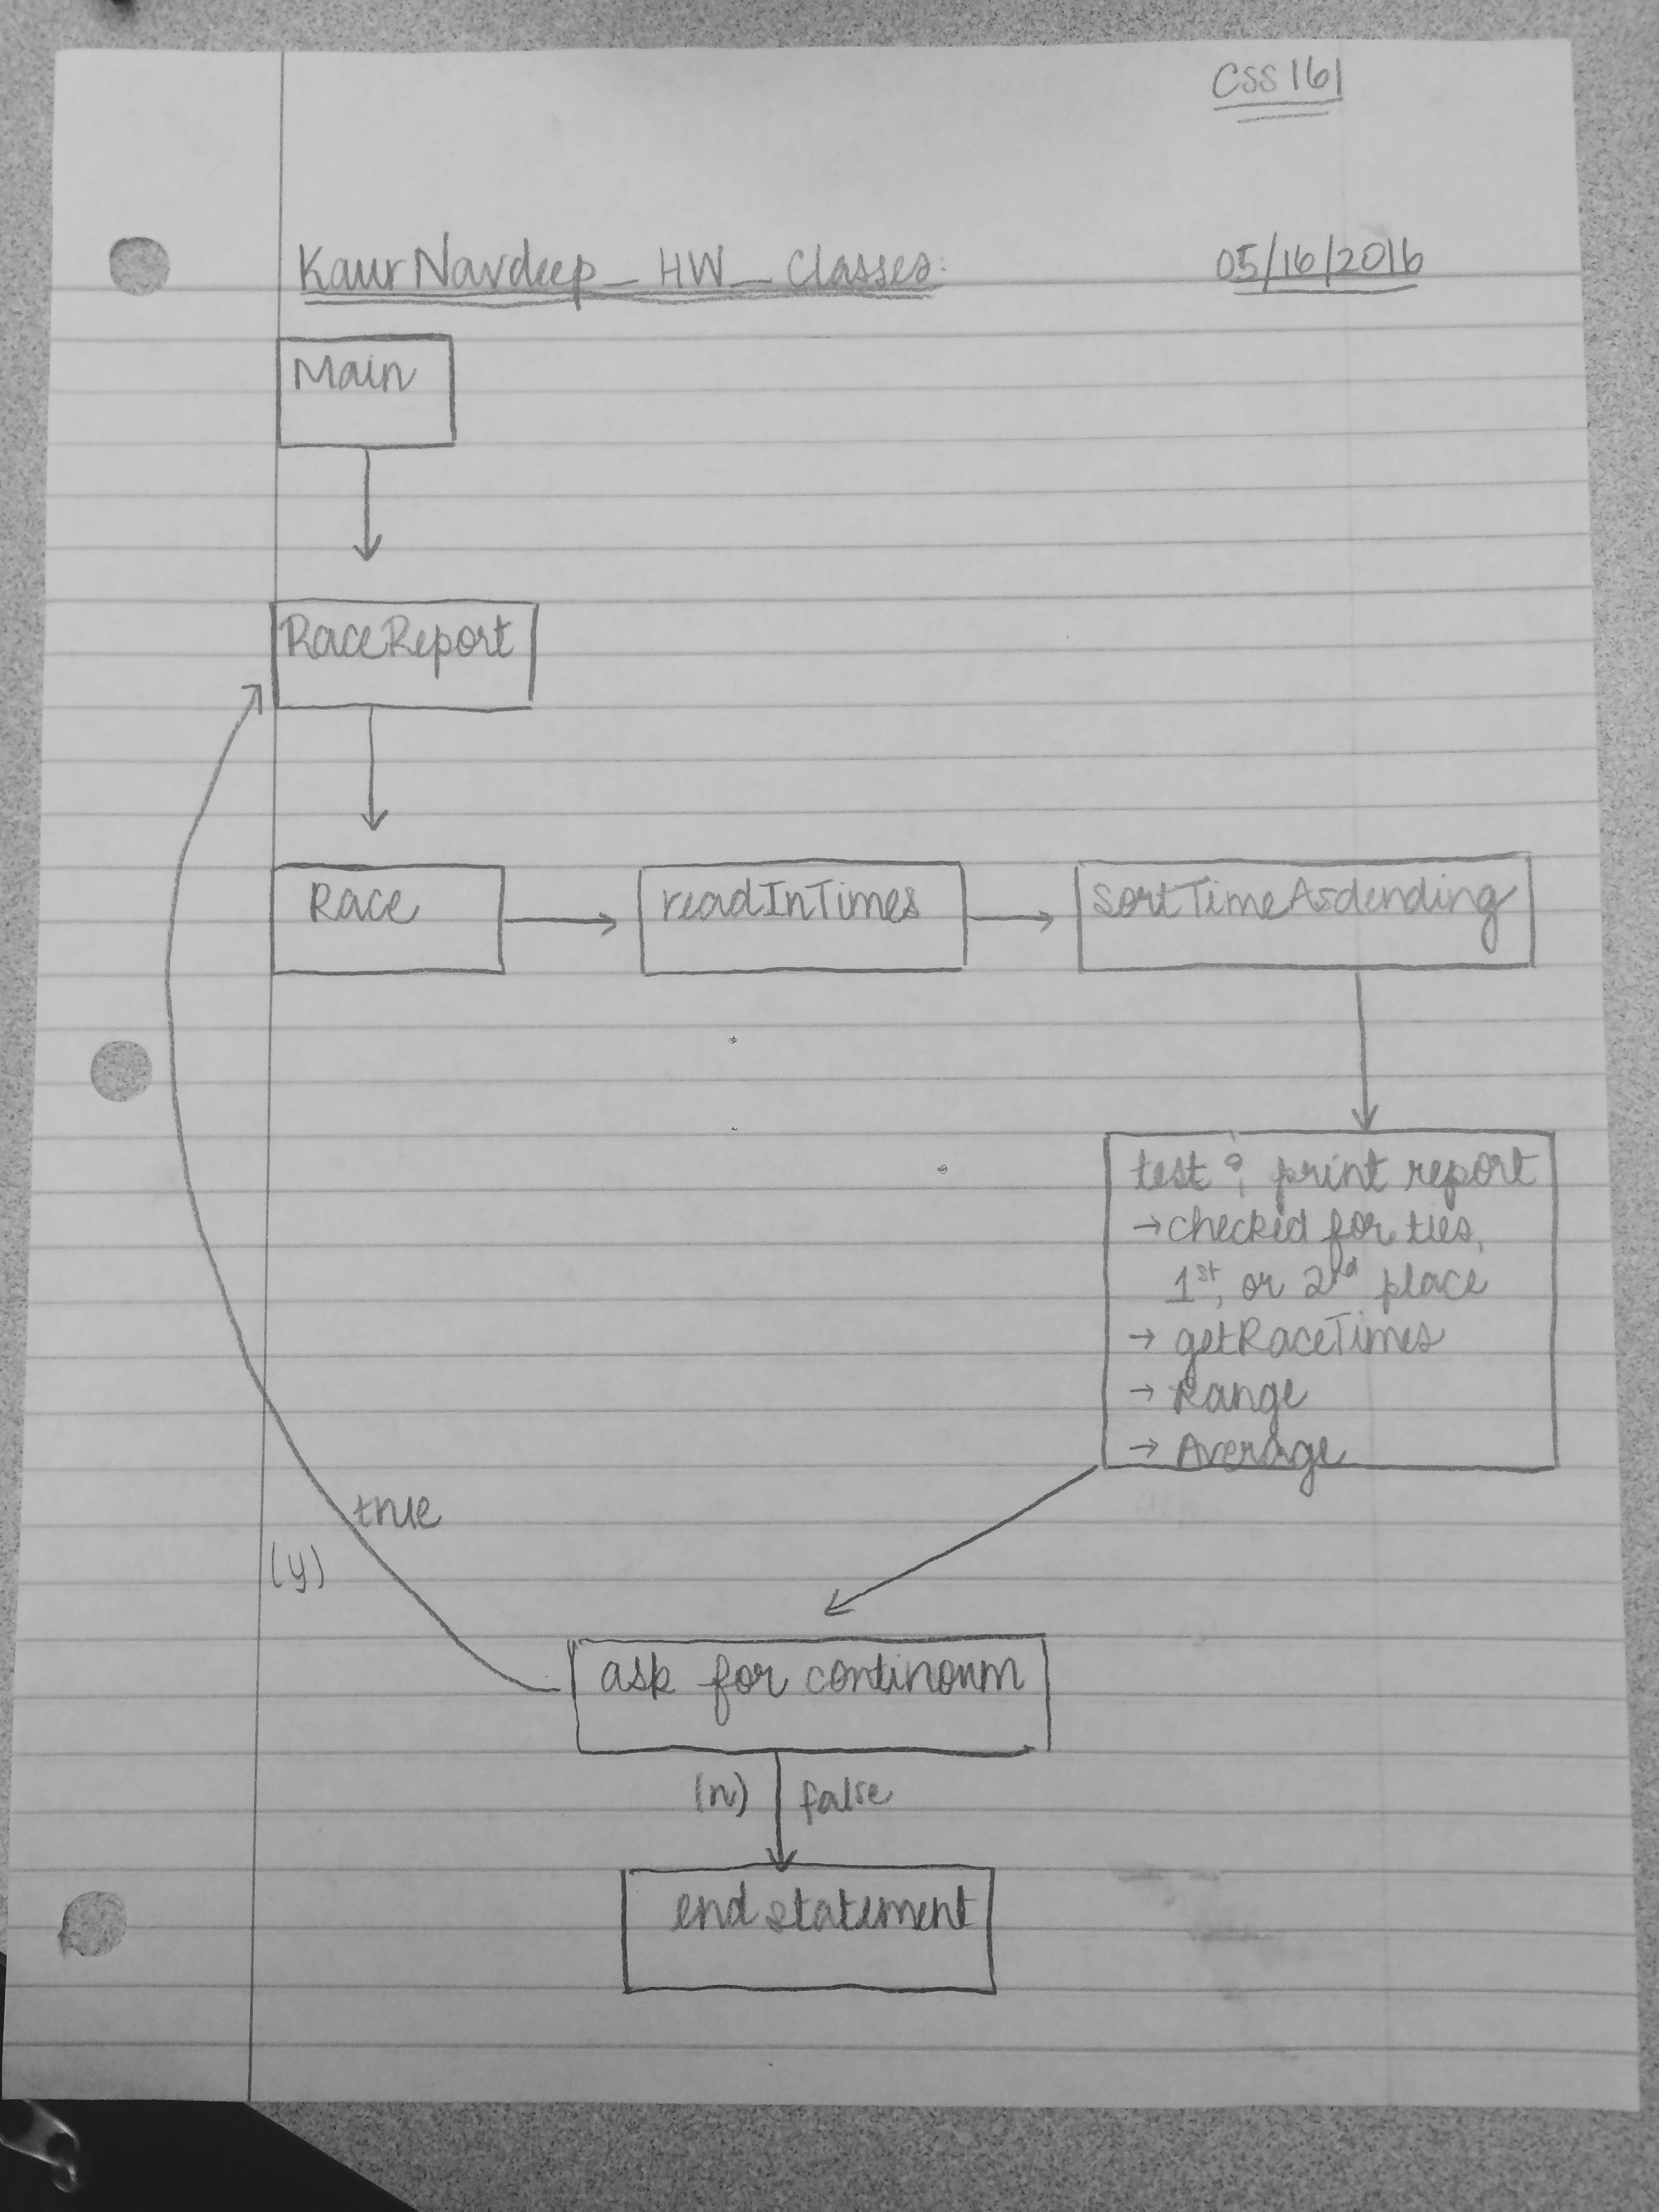 CSS 161
KaurNavdeep_HW_Classes.
05/16/2016
Main
RaceReport
Race
readInTimes
sortTimeAsdending
test & print report
→ checked for ties,
1st, or 2nd place
→ getRaceTimes
→ Range
→ Average
true
(y)
ask for continoum
(n) false
end statement